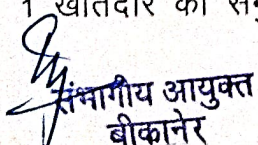 1 खातेदार का
संभागीय आयुक्त
बीकानेर